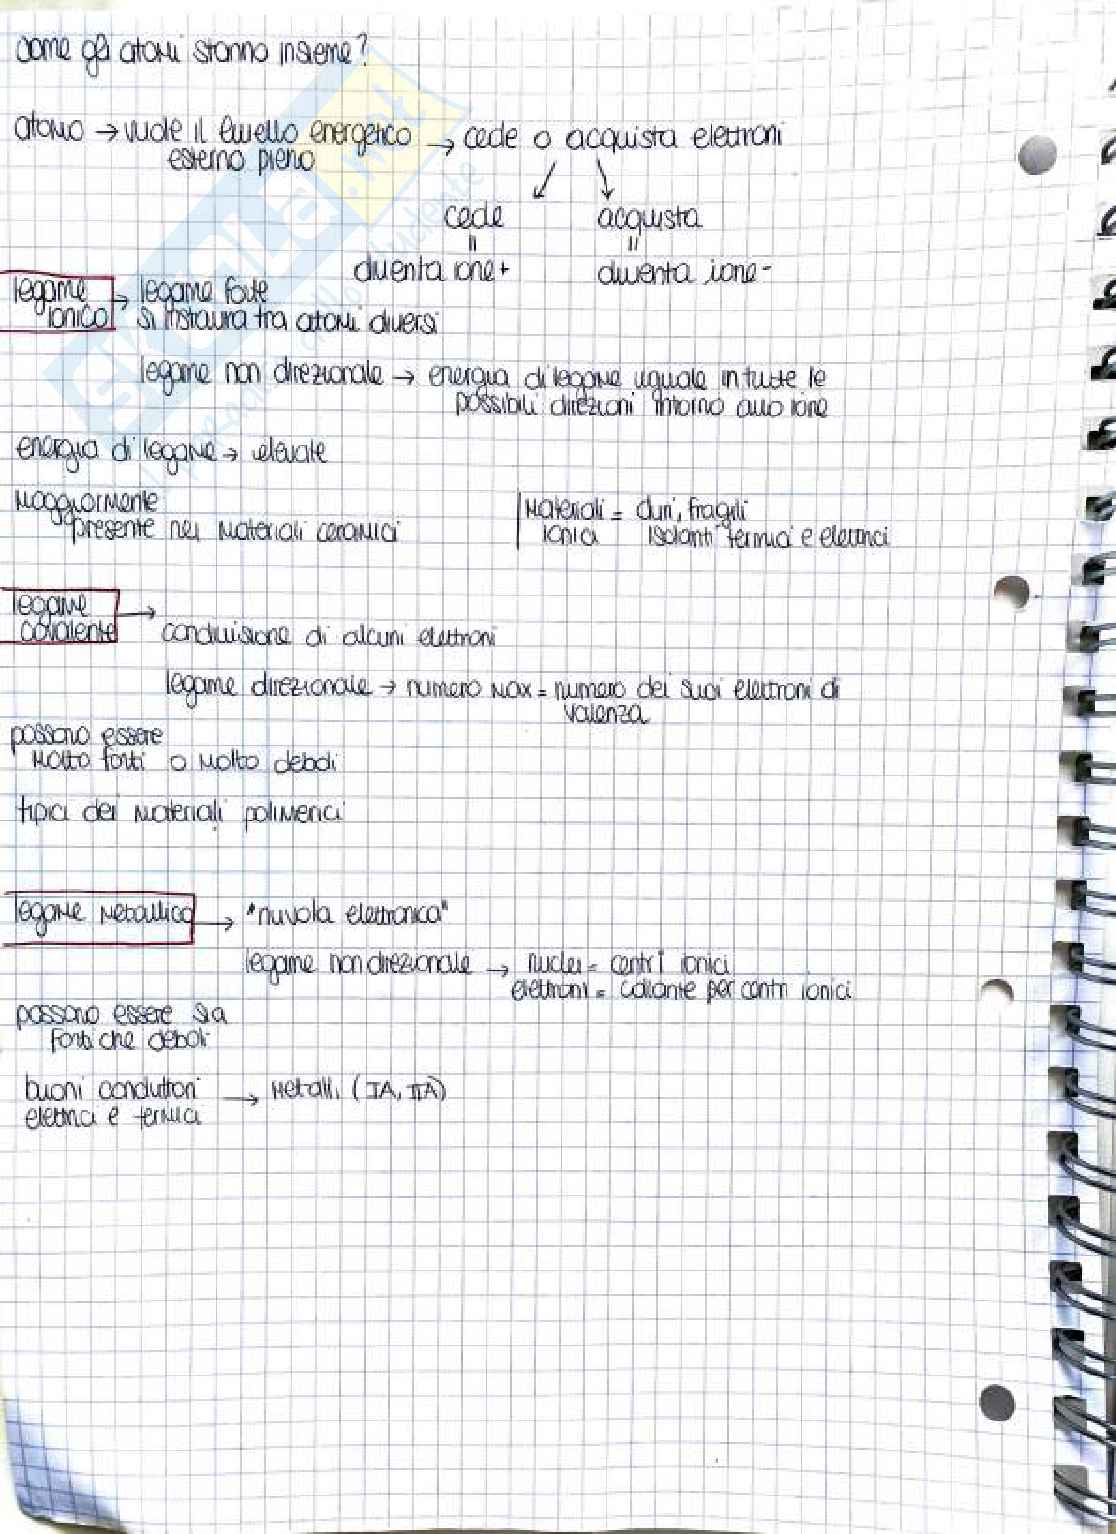 come gli atomi stanno insieme?
atomo → vuole il livello energetico → cede o acquista elettroni
esterno pieno
cede acquista
= =
diventa ione+ diventa ione-
legame → legame forte
ionico si instaura tra atomi diversi
legame non direzionale → energia di legame uguale in tutte le
possibili direzioni intorno allo ione
energia di legame → elevate
maggiormente
presente nei materiali ceramici
materiali = duri, fragili
ionici isolanti termici e elettrici
legame →
covalente condivisione di alcuni elettroni
legame direzionale → numero max = numero dei suoi elettroni di
valenza
possono essere
molto forti o molto deboli
tipici dei materiali polimerici
legame metallico → "nuvola elettronica"
legame non direzionale → nuclei = centri ionici
elettroni = collante per centri ionici
possono essere sia
forti che deboli
buoni conduttori → metalli (IA, IIA)
elettrici e termici
skuola.net